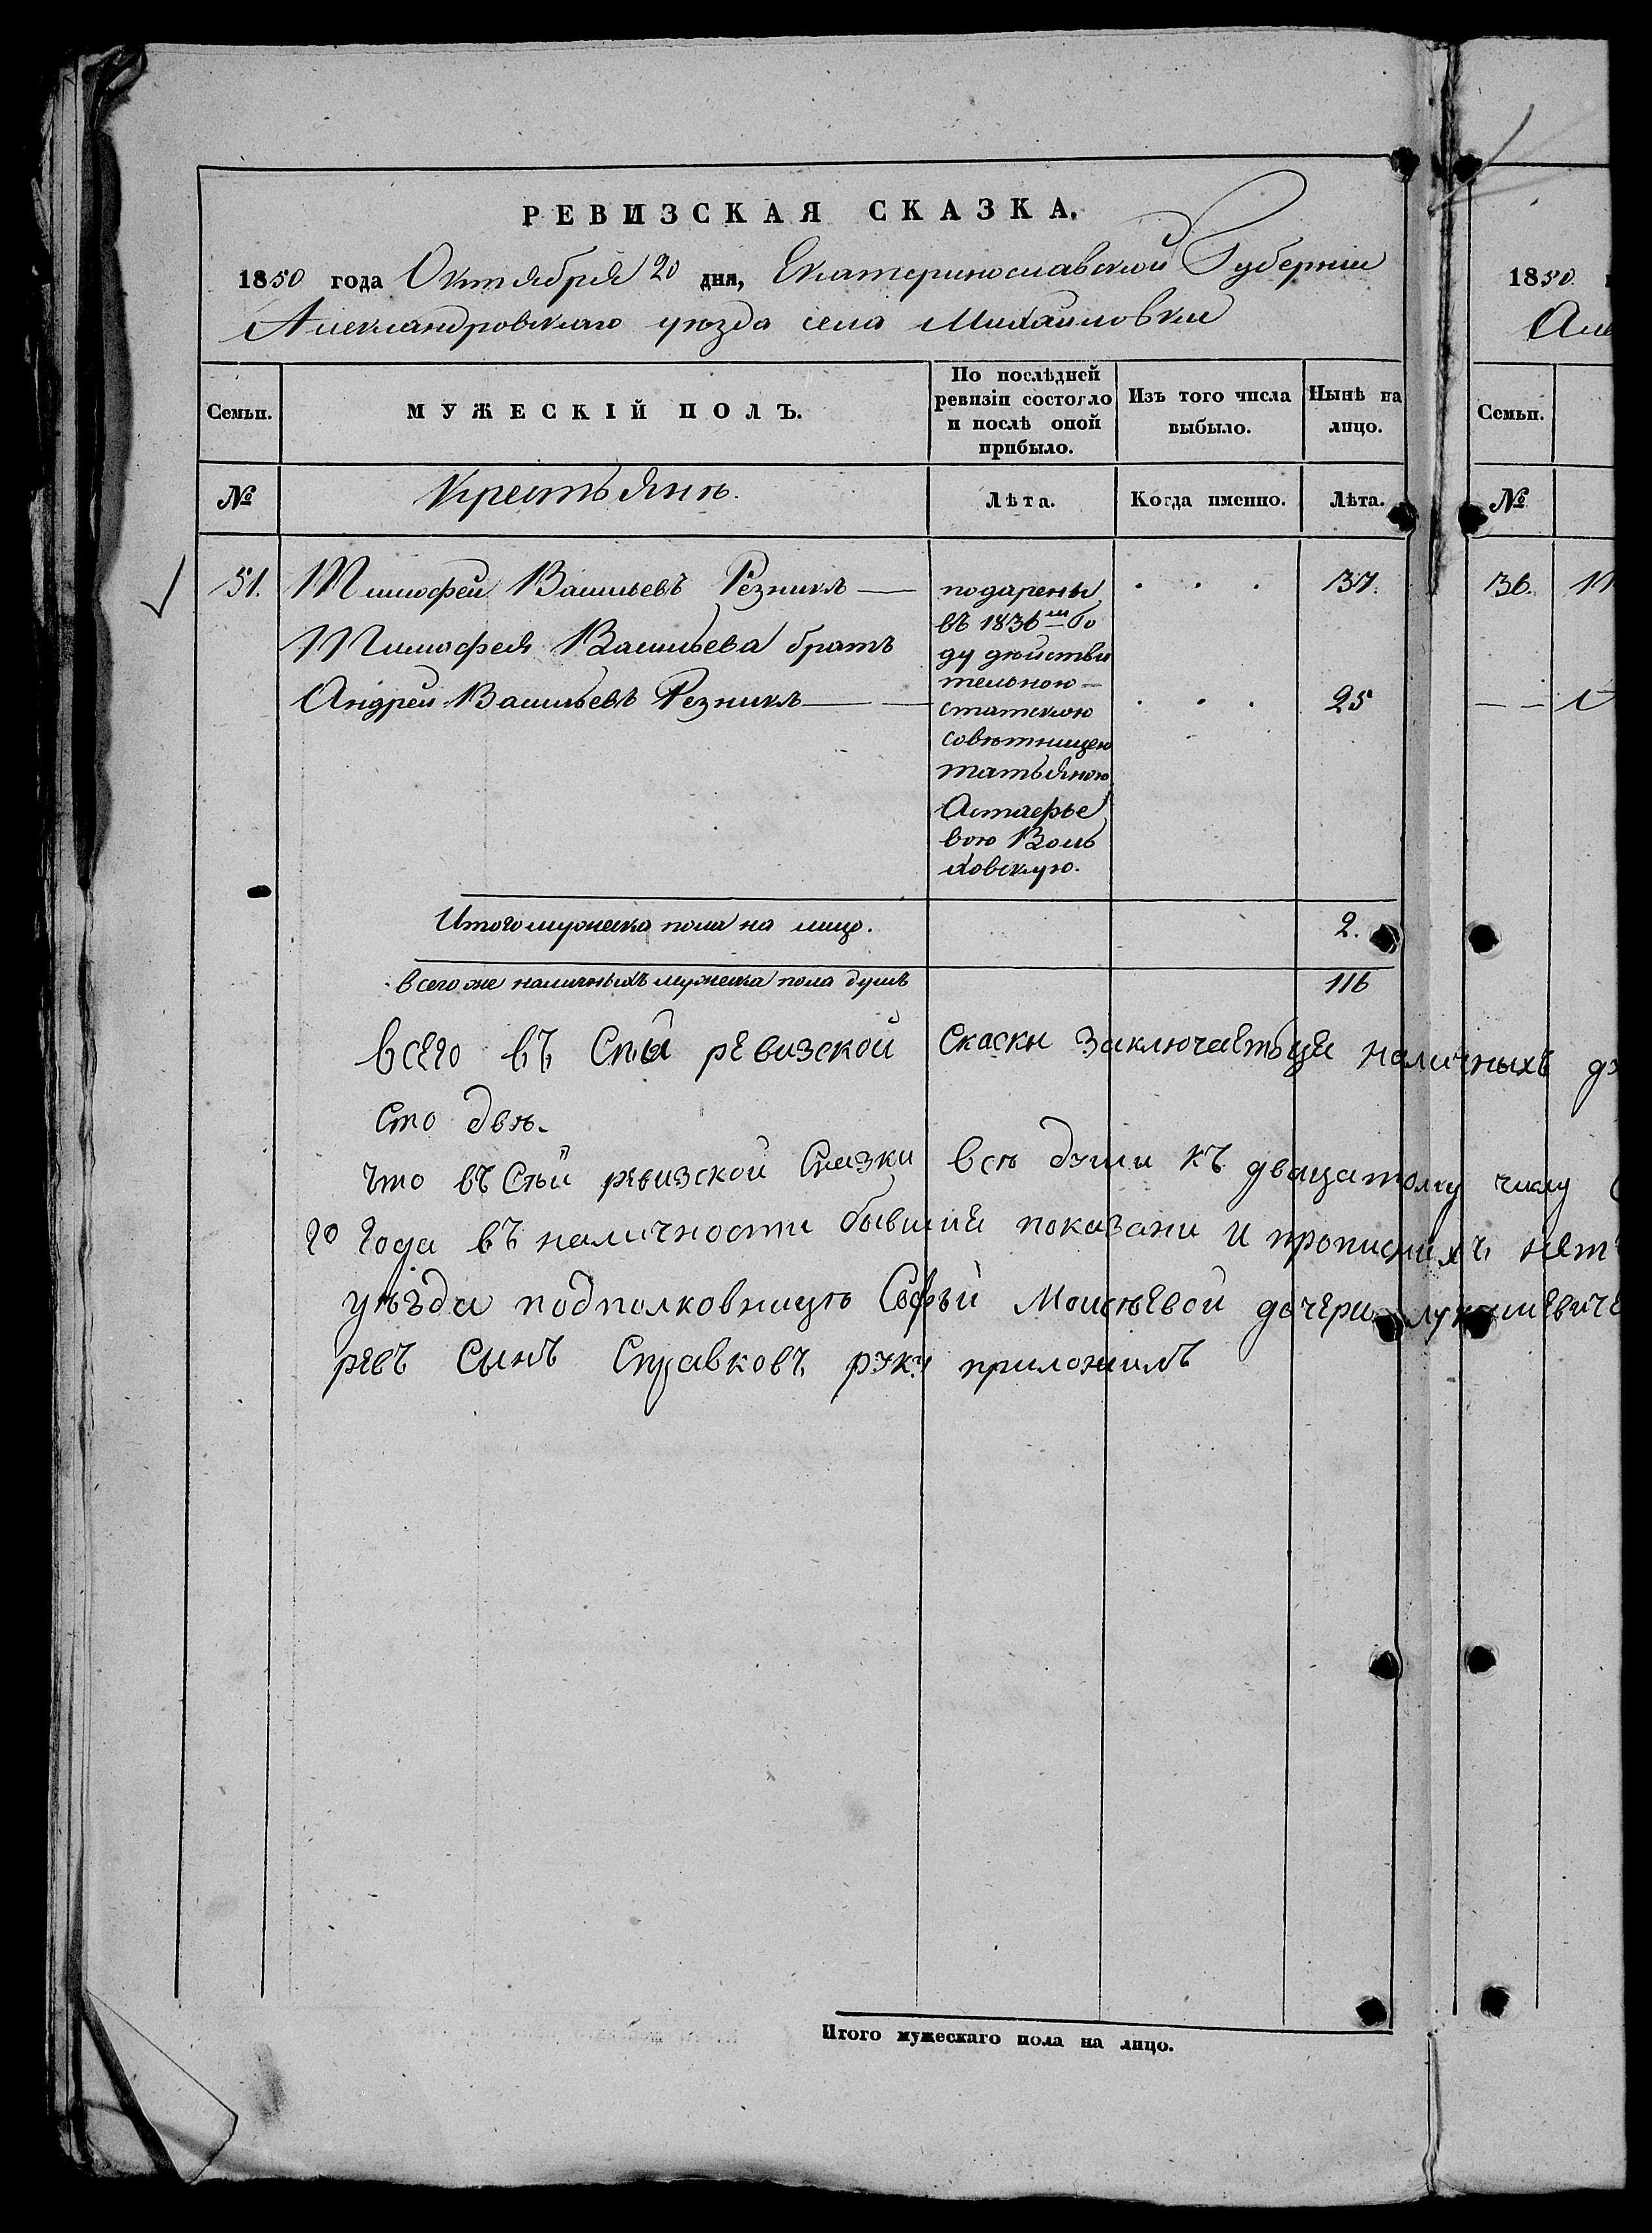 РЕВИЗСКАЯ СКАЗКА.
1850 года Октября 20 дня, Екатеринославской Губернiи
Александровскаго уѣзда села Михайловки
Семьи.
МУЖЕСКІЙ ПОЛЪ.
По послѣдней ревизіи состояло и послѣ оной прибыло.
Изъ того числа выбыло.
Нынѣ на лицо.
№
Крестьянъ.
Лѣта.
Когда именно.
Лѣта.
51. Тимофей Васильевъ Резникъ — подарены . . . 37.
въ 1836 м Го
Тимофея Васильева братъ ду дѣйстви
тельною —
Андрей Васильевъ Резникъ — статскою . . . 25
совѣтницею
татьяною
Астафье
вою Воль
ховскую.
Итого мужеска пола на лицо. 2.
всего же наличныхъ мужеска пола душъ 116
всего въ Сѣй ревизской Скаски заключаетьця наличныхъ
Сто двѣ.
что въ Сѣй ревизской Сказки всѣ души къ двацатому числу
го года въ наличности бывшия показани и прописнихъ нетъ
уѣзда подполковницѣ Софьи Моисѣевой дочери
ревъ Сынъ Справковъ руку приложилъ
Итого мужескаго пола на лицо.
1850
Але
Семьи.
№
36.